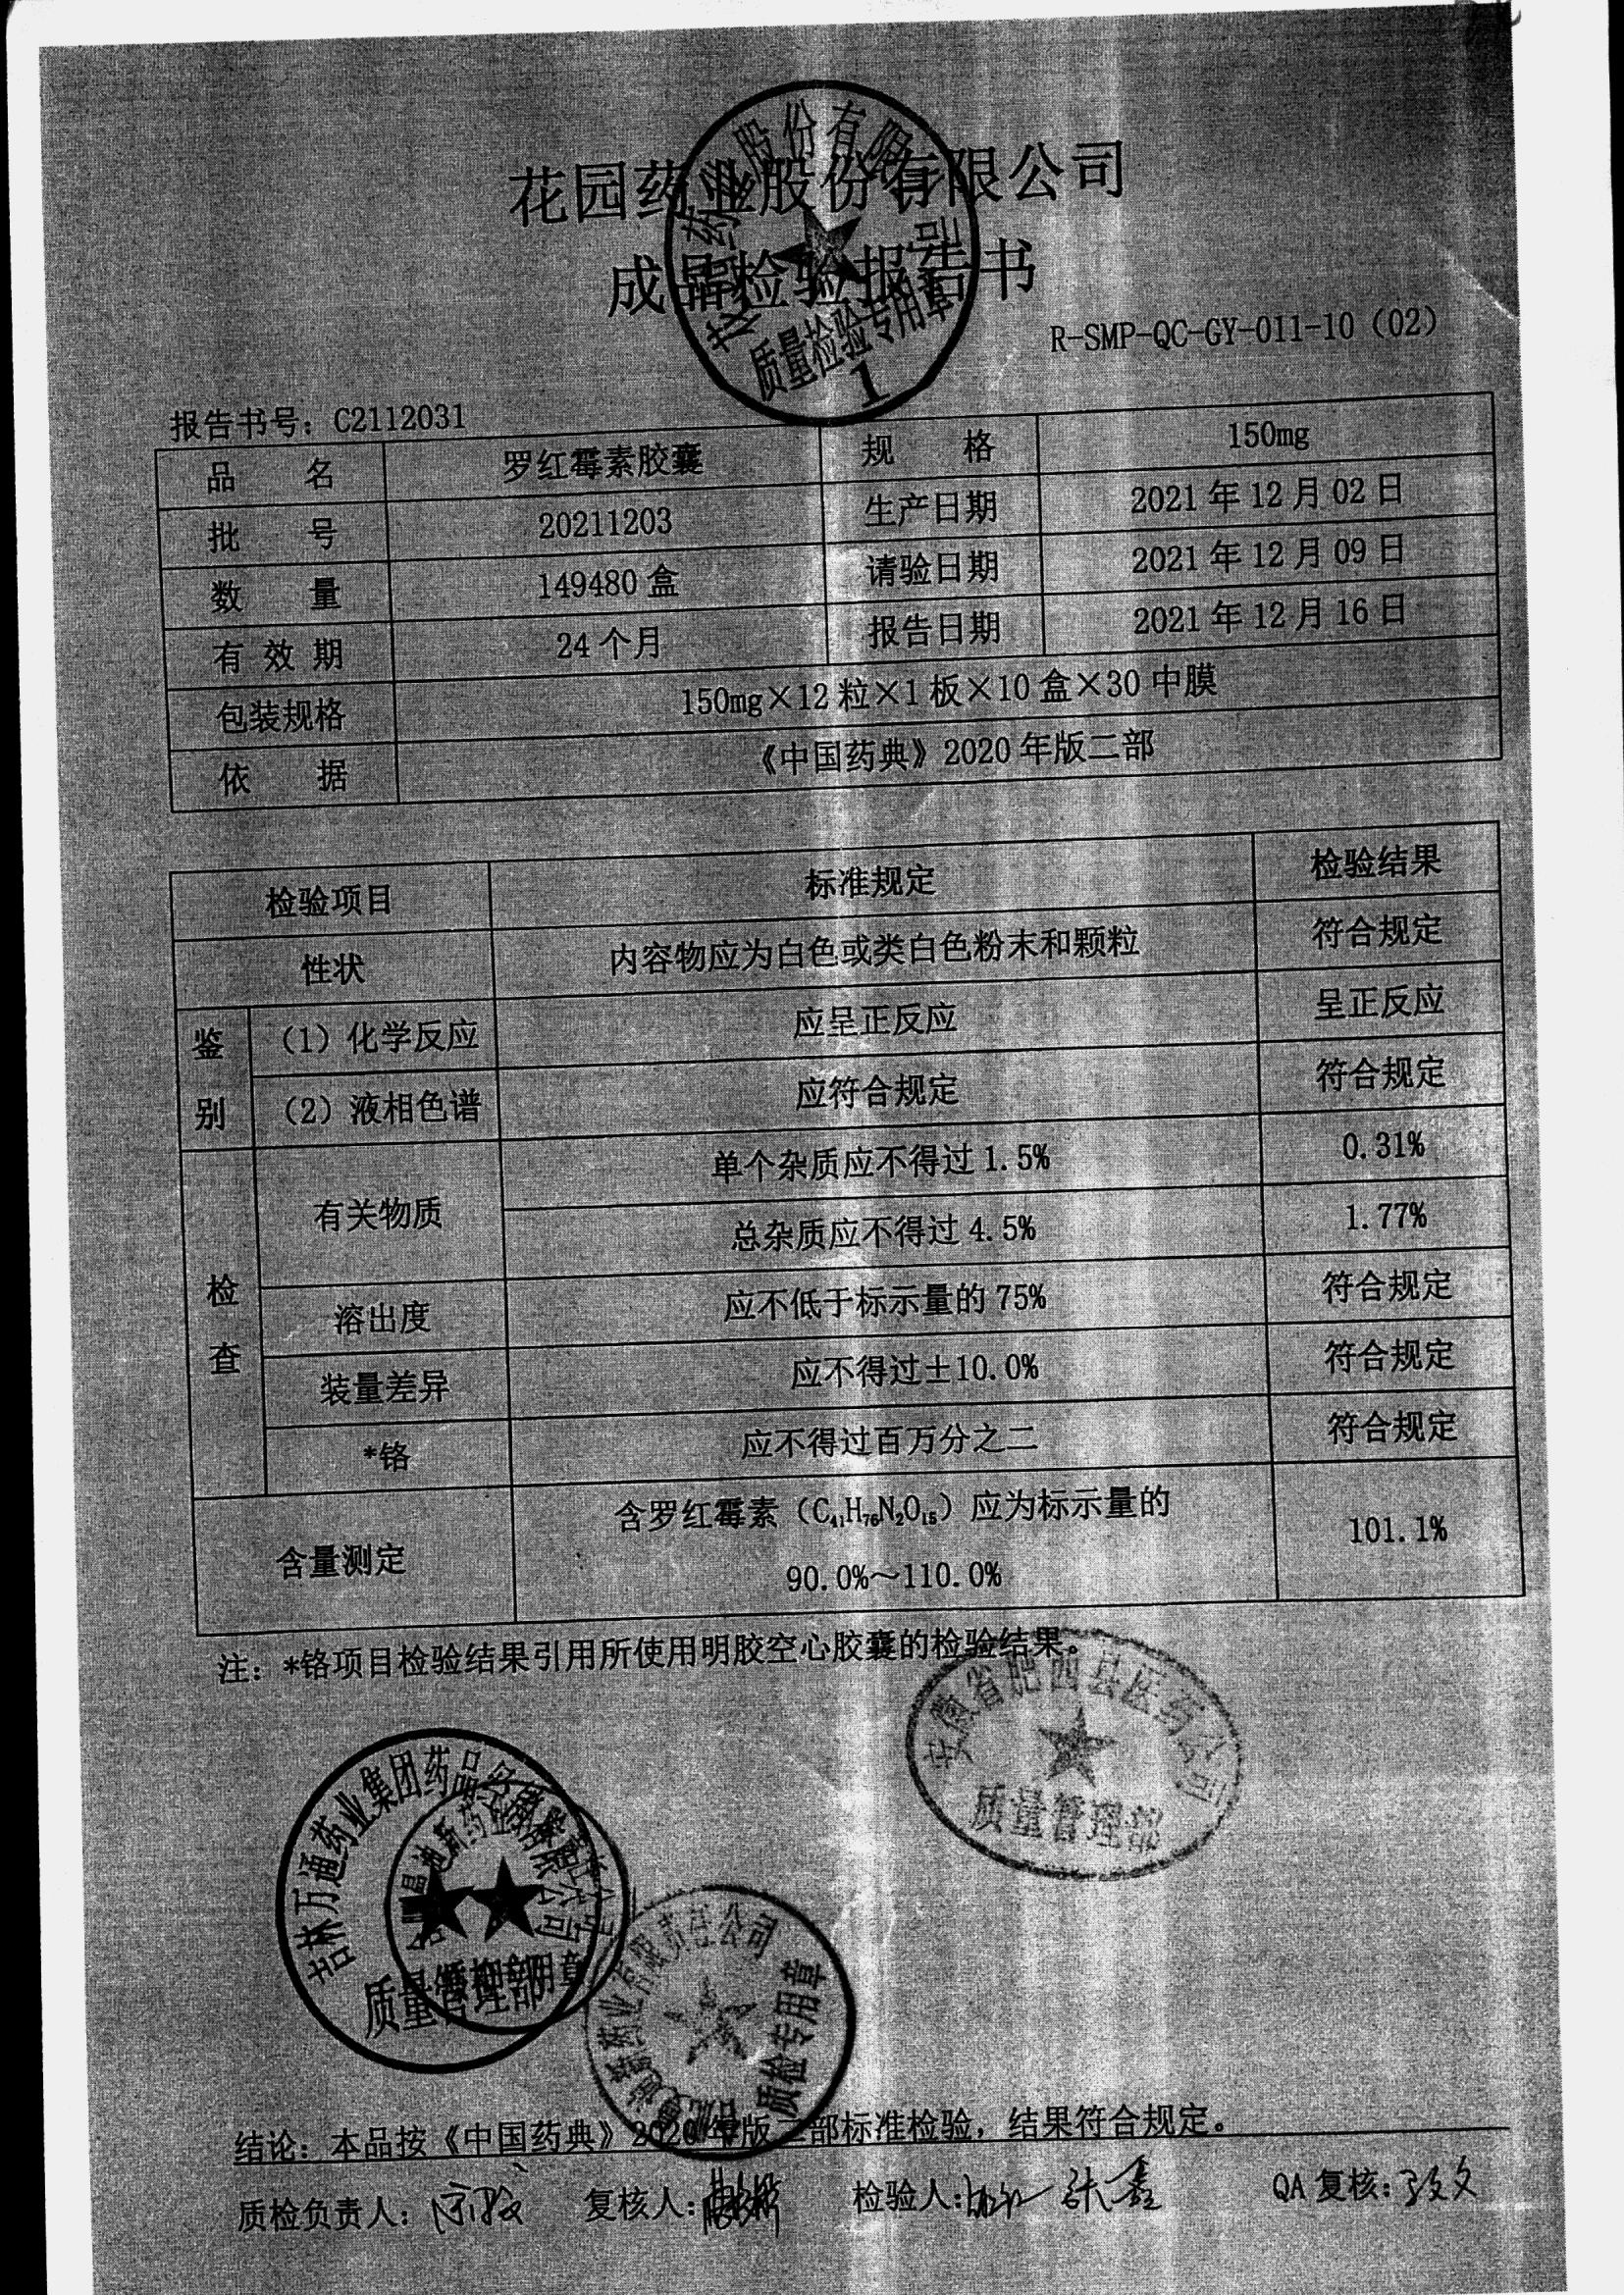 花园药业股份有限公司
成品检验报告书
质量检验专用章
1
R-SMP-QC-GY-011-10（02）
报告书号：C2112031
品 名 罗红霉素胶囊 规 格 150mg
批 号 20211203 生产日期 2021年12月02日
数 量 149480盒 请验日期 2021年12月09日
有效期 24个月 报告日期 2021年12月16日
包装规格 150mg×12粒×1板×10盒×30中膜
依 据 《中国药典》2020年版二部
检验项目 标准规定 检验结果
性状 内容物应为白色或类白色粉末和颗粒 符合规定
鉴别 （1）化学反应 应呈正反应 呈正反应
（2）液相色谱 应符合规定 符合规定
检查 有关物质 单个杂质应不得过1.5% 0.31%
总杂质应不得过4.5% 1.77%
溶出度 应不低于标示量的75% 符合规定
装量差异 应不得过±10.0% 符合规定
*铬 应不得过百万分之二 符合规定
含量测定 含罗红霉素（C₄₁H₇₆N₂O₁₅）应为标示量的 101.1%
90.0%～110.0%
注：*铬项目检验结果引用所使用明胶空心胶囊的检验结果。
安徽省肥西县医药公司
质量管理部
吉林万通药业集团药品
质量管理部
质检专用章
结论：本品按《中国药典》2020年版二部标准检验，结果符合规定。
质检负责人： 复核人： 检验人： 张鑫 QA复核：